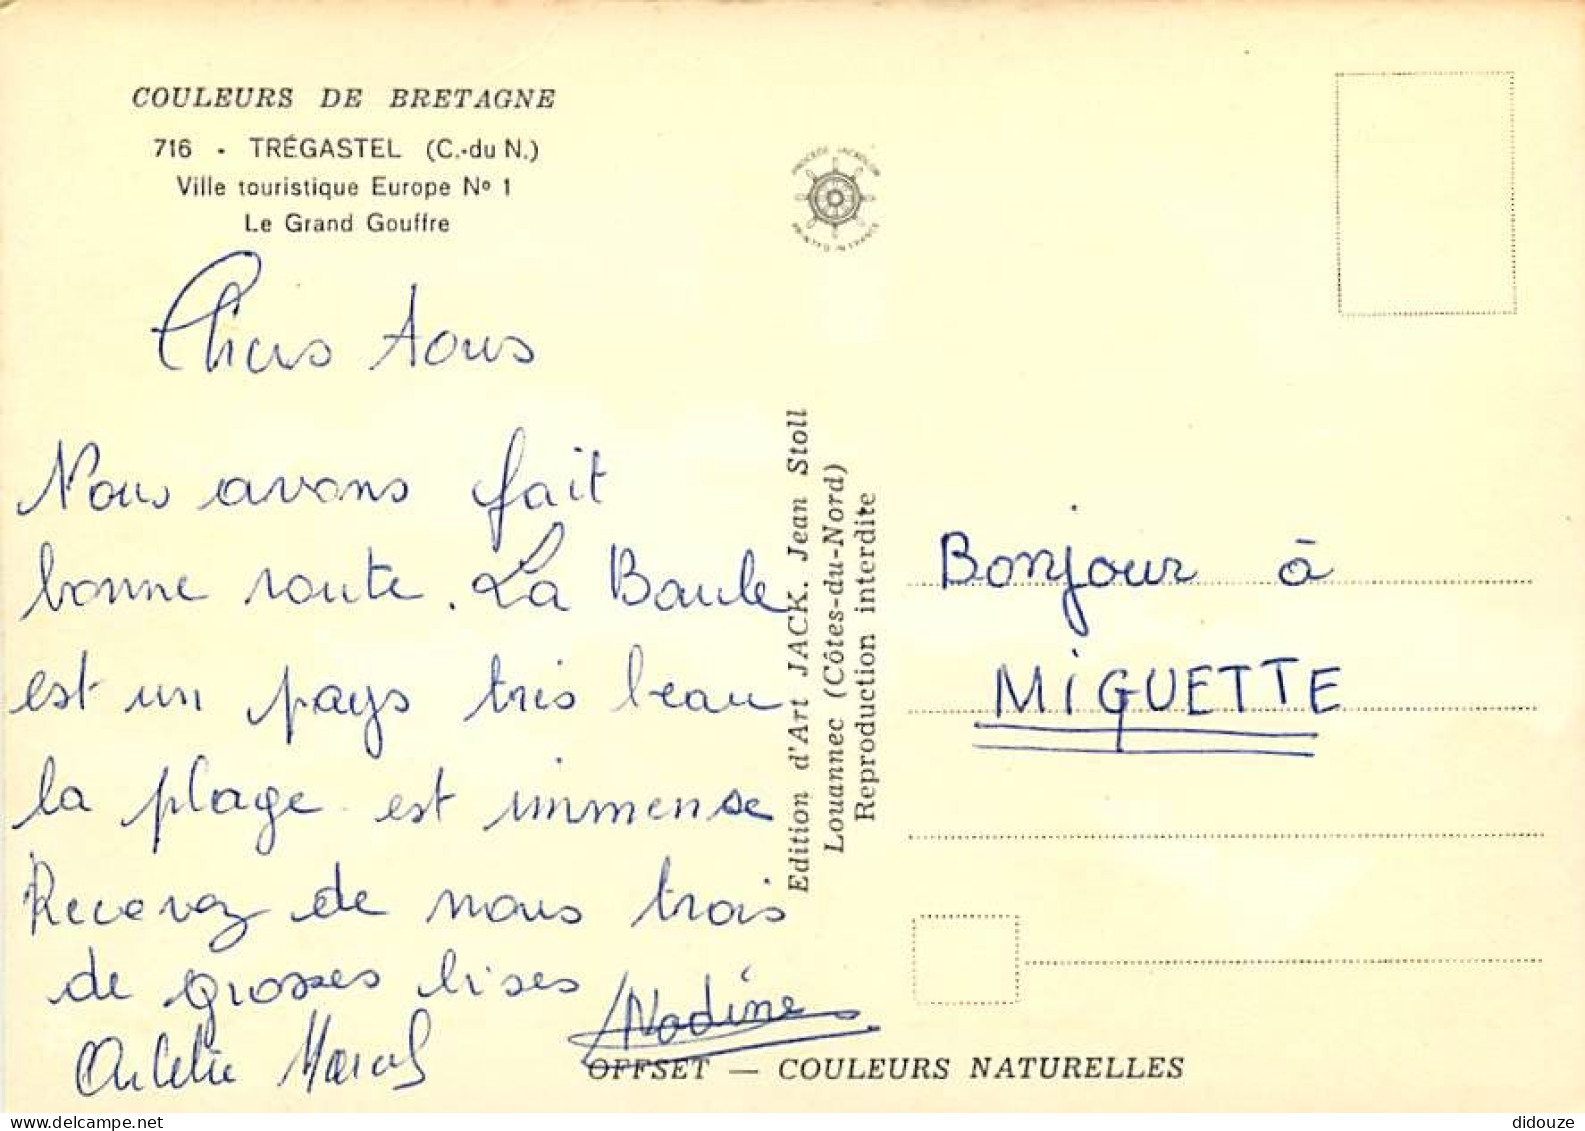 COULEURS DE BRETAGNE
716 - TRÉGASTEL (C.-du N.)
Ville touristique Europe Nº 1
Le Grand Gouffre
Chers tous
Nous avons fait
bonne route. La Baule
est un pays très beau
la plage est immense
Recevez de nous trois
de grosses bises
Marcel
Nadine
PROCÉDÉ JACKOLOR
PRINTED IN FRANCE
Edition d'Art JACK. Jean Stoll
Louannec (Côtes-du-Nord)
Reproduction interdite
Bonjour à
MiGUETTE
OFFSET — COULEURS NATURELLES
delcampe.net
didouze